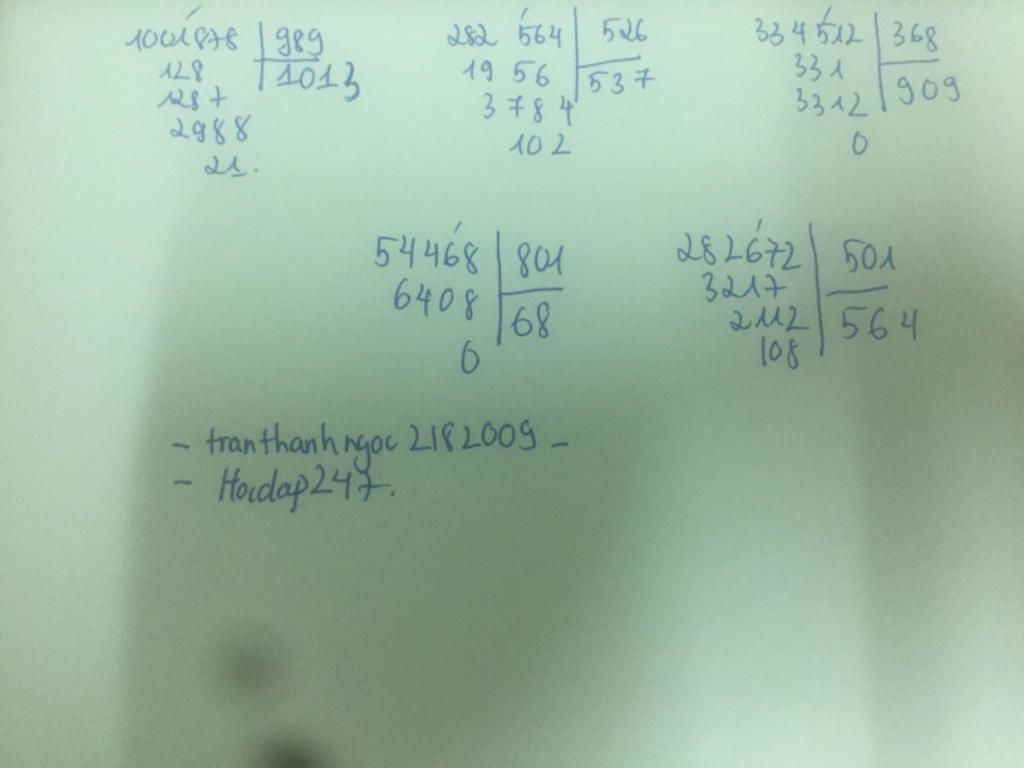 1001878 989
128 1013
1287
2988
21.
282 564 526
19 56 537
3 784
102
334512 368
331 909
3312
0
54468 801
6408 68
0
282672 501
3217 564
2112
108
- tranthanhngoc 2182009 -
- Hocdap247.